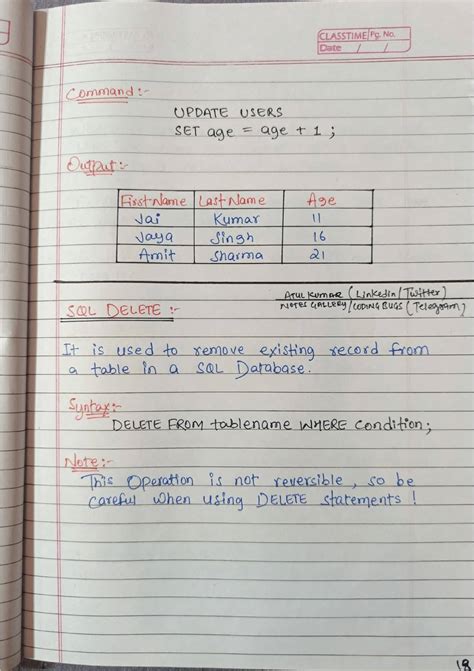 CLASSTIME Pg. No.
Date / /
Command :-
UPDATE USERS
SET age = age + 1 ;
Output :-
First-Name Last Name Age
Jai Kumar 11
Jaya Singh 16
Amit Sharma 21
ATUL KUMAR (LinkedIn/Twitter)
NOTES GALLERY/CODING BUGS (Telegram)
SQL DELETE :-
It is used to remove existing record from
a table in a SQL Database.
Syntax:-
DELETE FROM tablename WHERE Condition;
Note:-
This Operation is not reversible, so be
careful when using DELETE statements !
18